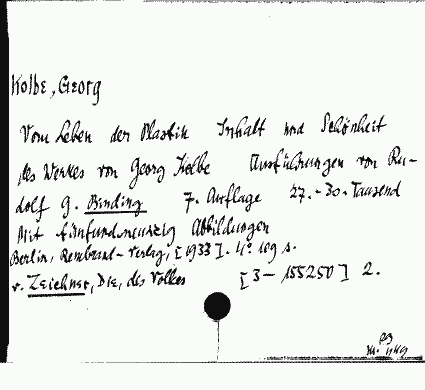 Kolbe, Georg
Vom Leben der Plastik Inhalt und Schönheit
des Werkes von Georg Kolbe Ausführungen von Ru-
dolf G. Binding 7. Auflage 27.-30. Tausend
Mit fünfundneunzig Abbildungen
Berlin, Rembrandt-Verlag, [1933]. 4° 109 S.
v. Zeichner, Die, des Volkes [3-155250] 2.